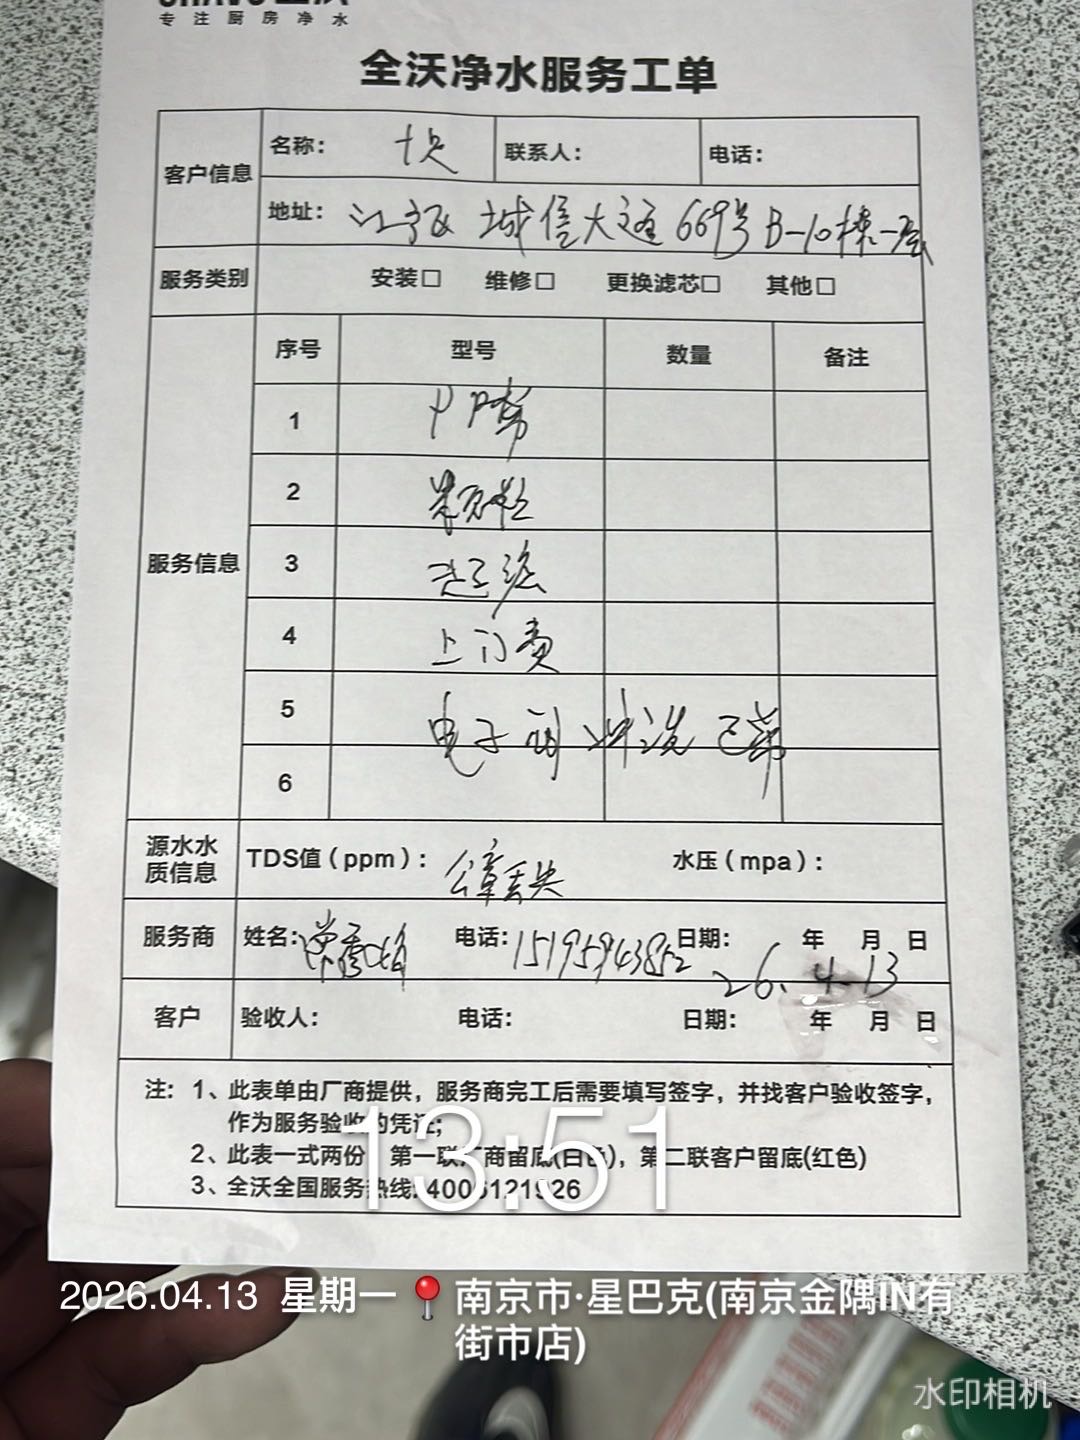 专注厨房净水
全沃净水服务工单
客户信息 名称: 联系人: 电话:
地址: 江宁区 城信大道669号B-10栋一层
服务类别 安装□ 维修□ 更换滤芯□ 其他□
服务信息 序号 型号 数量 备注
1 PP棉
2
3
4 上门费
5 电子阀 冲洗 已带
6
源水水质信息 TDS值(ppm): 公章丢失 水压(mpa):
服务商 姓名: 电话:15195943852 日期: 年 月 日 26.4.13
客户 验收人: 电话: 日期: 年 月 日
注: 1、此表单由厂商提供，服务商完工后需要填写签字，并找客户验收签字，
作为服务验收的凭证;
2、此表一式两份，第一联厂商留底(白色)，第二联客户留底(红色)
3、全沃全国服务热线:4006121926
13:51
2026.04.13 星期一 南京市·星巴克(南京金隅IN有
街市店)
水印相机